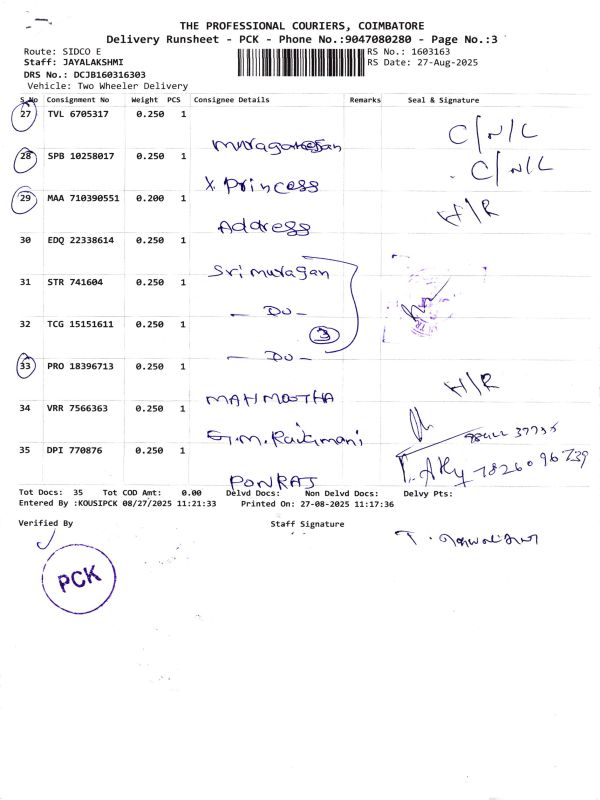 THE PROFESSIONAL COURIERS, COIMBATORE
Delivery Runsheet - PCK - Phone No.:9047080280 - Page No.:3
Route: SIDCO E RS No.: 1603163
Staff: JAYALAKSHMI RS Date: 27-Aug-2025
DRS No.: DCJB160316303
Vehicle: Two Wheeler Delivery
S.No Consignment No Weight PCS Consignee Details Remarks Seal & Signature
27 TVL 6705317 0.250 1 C/N/L
28 SPB 10258017 0.250 1 X Princess C/N/L
29 MAA 710390551 0.200 1 Address H/R
30 EDQ 22338614 0.250 1 Sri muragan
31 STR 741604 0.250 1 - Do -
32 TCG 15151611 0.250 1 - Do - 3
33 PRO 18396713 0.250 1 MAHMOOTHA H/R
34 VRR 7566363 0.250 1 G.M.
35 DPI 770876 0.250 1 PONRAJ
Tot Docs: 35 Tot COD Amt: 0.00 Delvd Docs: Non Delvd Docs: Delvy Pts:
Entered By :KOUSIPCK 08/27/2025 11:21:33 Printed On: 27-08-2025 11:17:36
Verified By Staff Signature
PCK